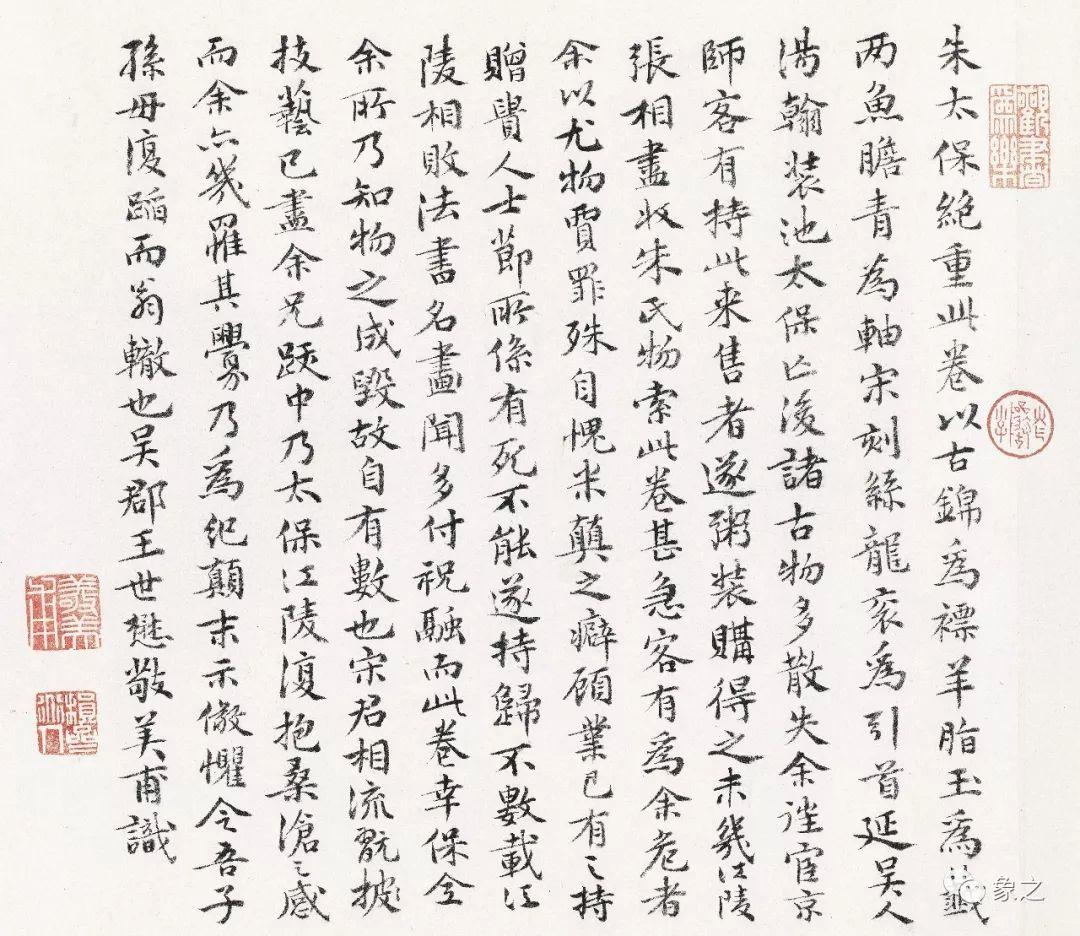 朱太保絶重此卷以古錦為褾羊脂玉為籤
两魚膽青為軸宋刻絲龍衮為引首延吴人
湯翰装池太保亡後諸古物多散失余往宦京
師客有持此来售者遂粥装購得之未幾江陵
張相盡收朱氏物索此卷甚急客有為余危者
余以尤物賈罪殊自愧米顛之癖顧業已有之持
贈貴人士節所係有死不能遂持歸不數載江
陵相敗法書名畫聞多付祝融而此卷幸保全
余所乃知物之成毀故自有數也宋君相流翫披
技藝已盡余兄跋中乃太保江陵復抱桑滄之感
而余亦幾罹其釁乃為紀顛末示儆懼令吾子
孫毋復蹈而翁轍也吴郡王世懋敬美甫識
象之